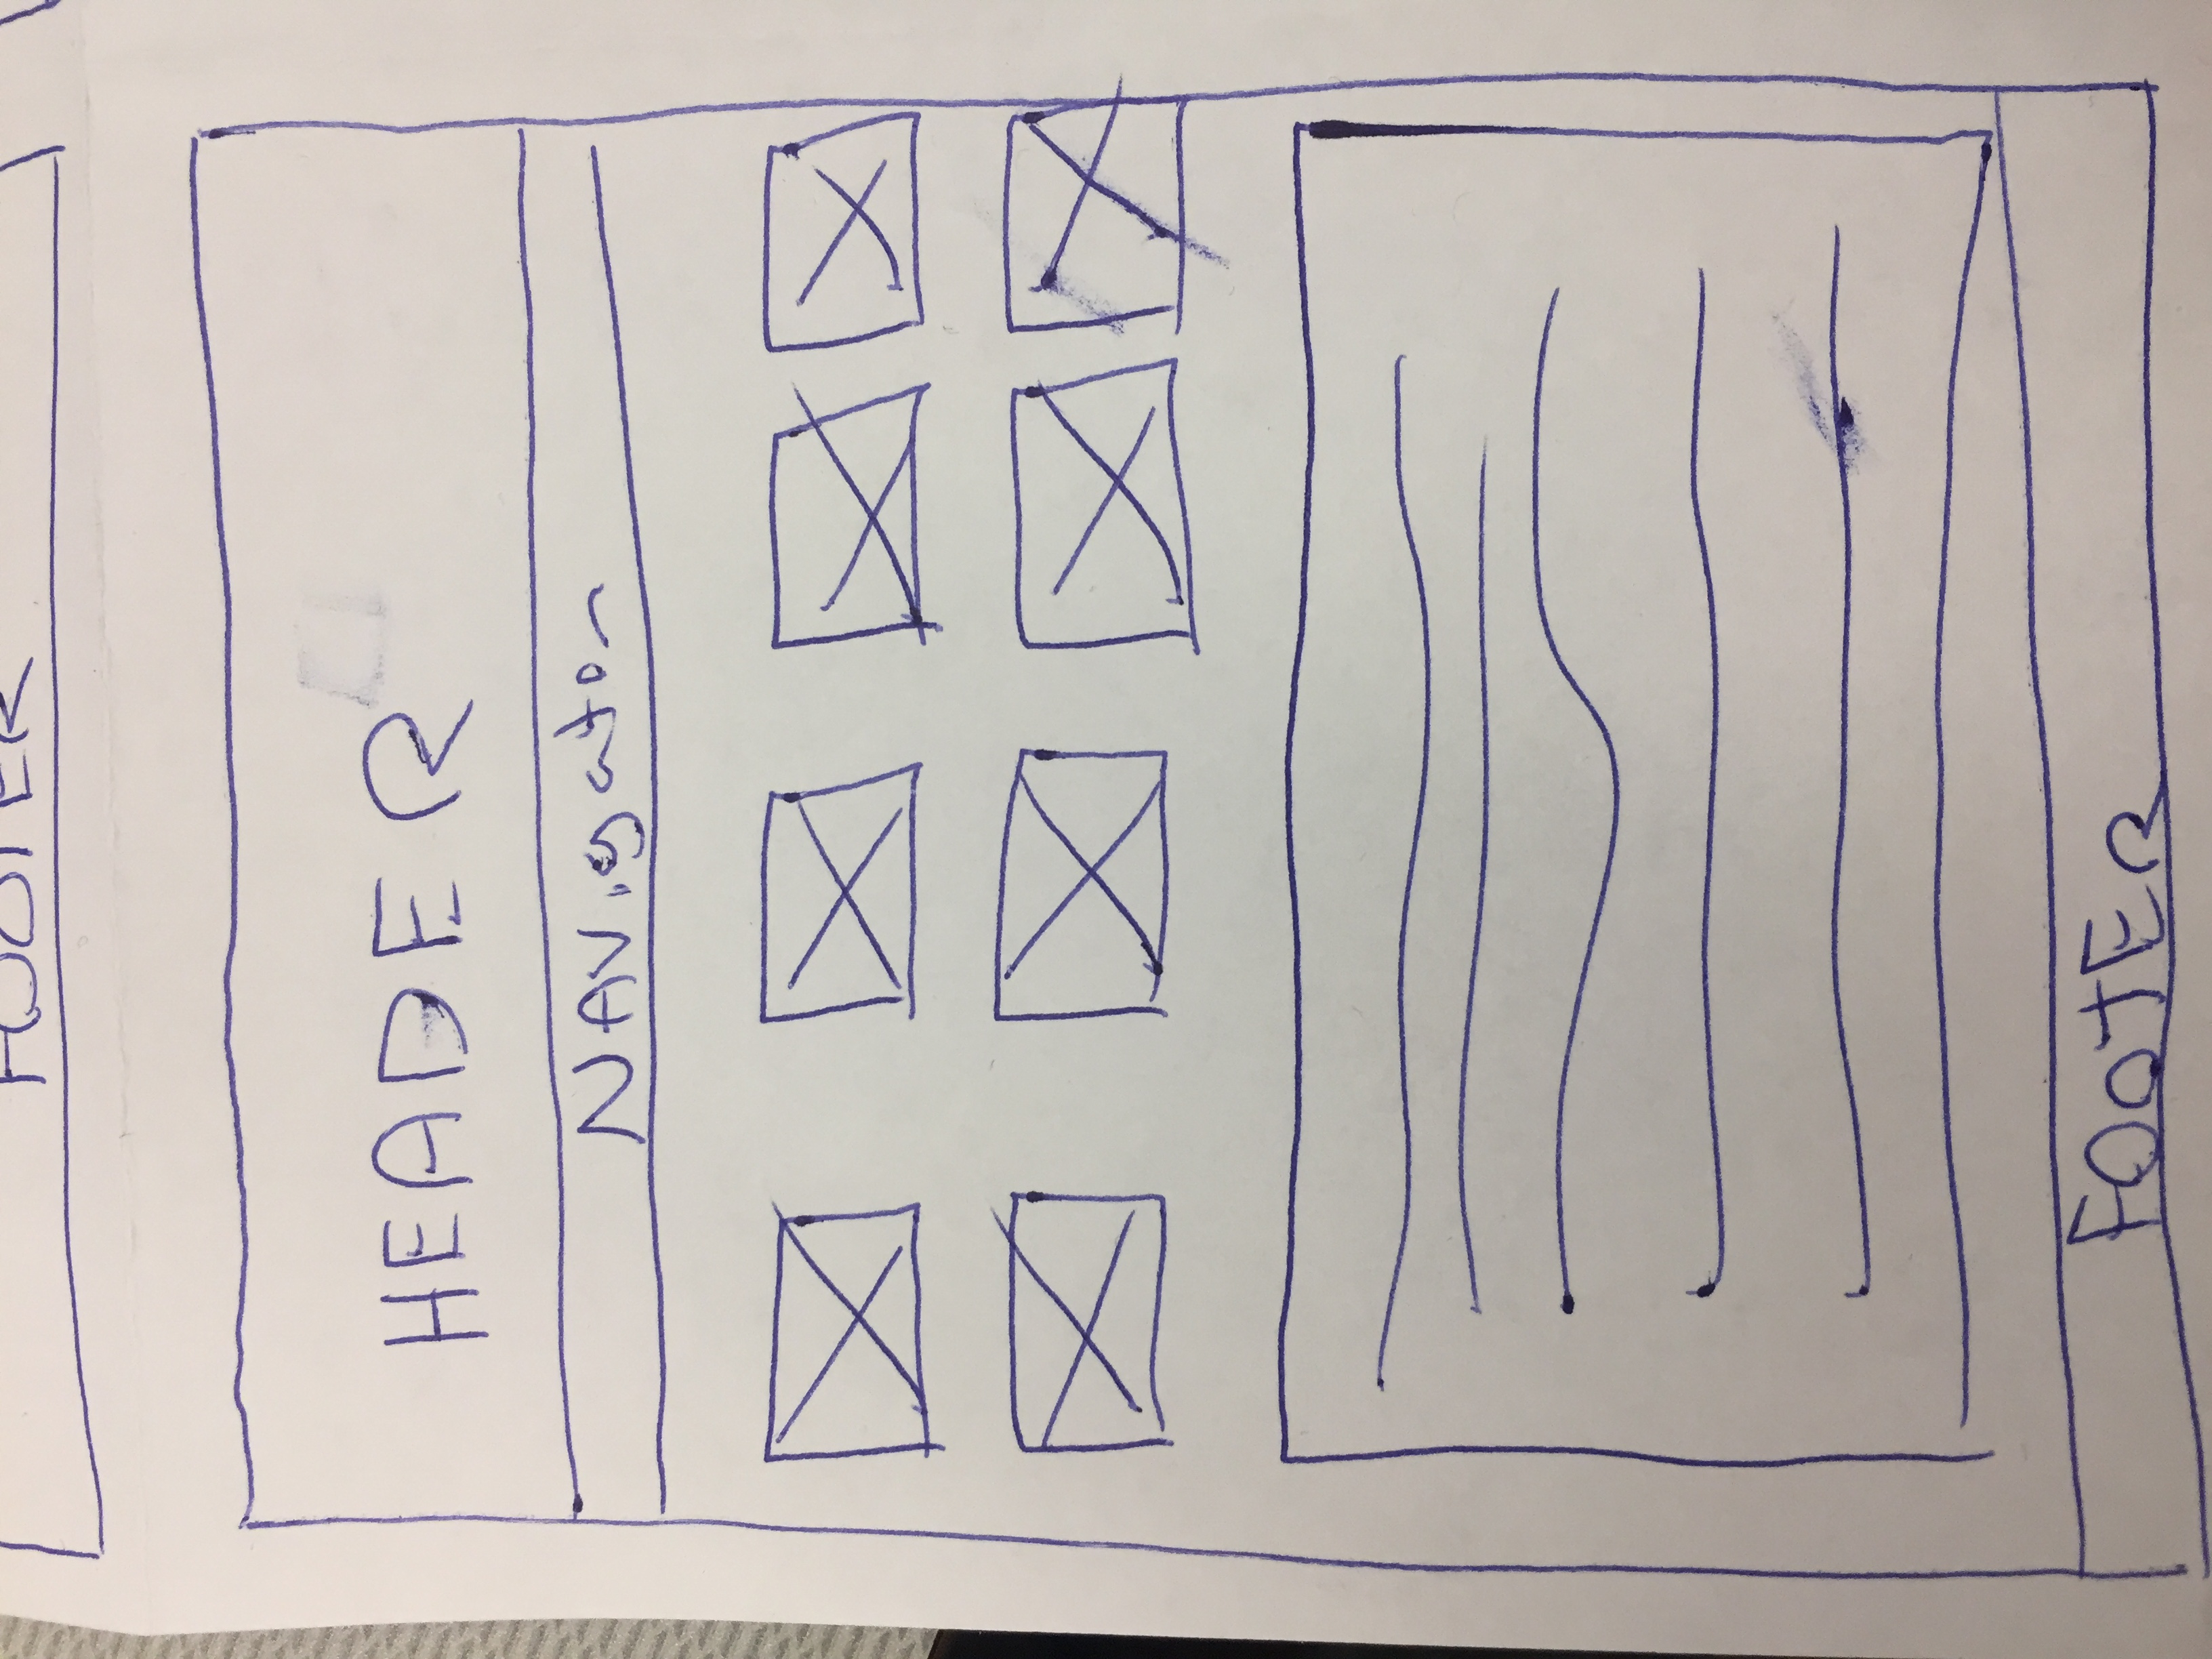 FOOTER
HEADER
NAVigaton
FOOTER